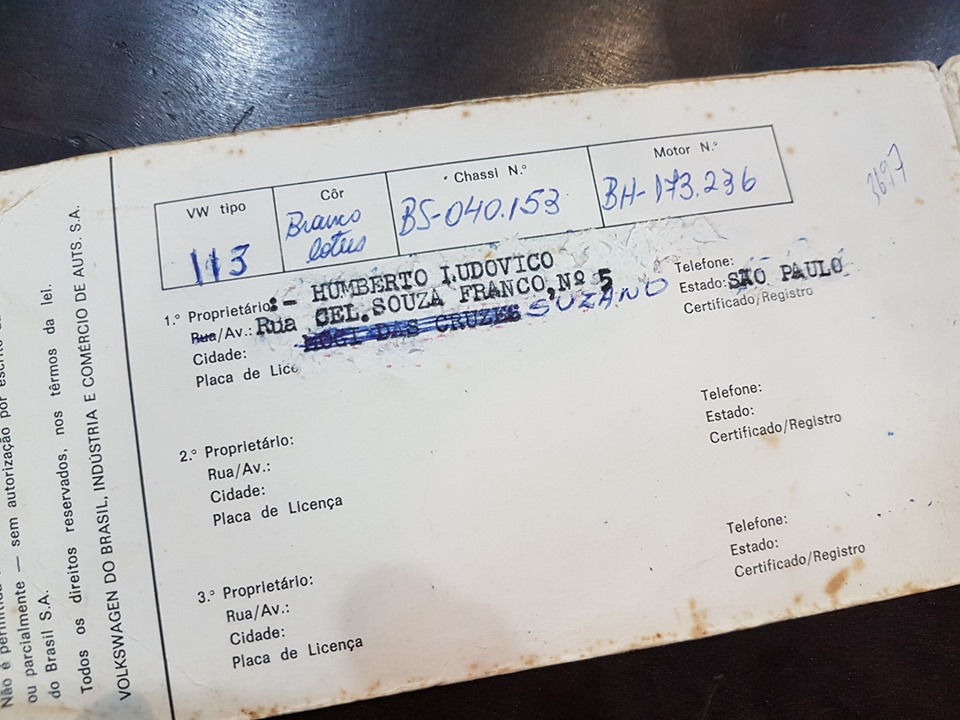 Não é permitida
ou parcialmente — sem autorização por escrito
do Brasil S.A.
Todos os direitos reservados, nos têrmos da lei.
VOLKSWAGEN DO BRASIL, INDÚSTRIA E COMÉRCIO DE AUTS. S.A.
VW tipo Côr Chassi N.º Motor N.º
113 Branco lotus BS-040.153 BH-173.236
3697
1.º Proprietário:- HUMBERTO LUDOVICO Telefone:
Rua/Av.: Rua CEL. SOUZA FRANCO, Nº 5 Estado: SÃO PAULO
Cidade: MOGI DAS CRUZES SUZANO Certificado/Registro
Placa de Lice
2.º Proprietário: Telefone:
Rua/Av.: Estado:
Cidade: Certificado/Registro
Placa de Licença
3.º Proprietário: Telefone:
Rua/Av.: Estado:
Cidade: Certificado/Registro
Placa de Licença